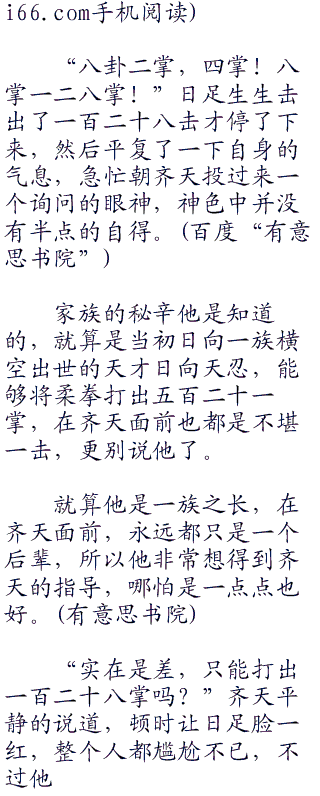 i66.com手机阅读)
“八卦二掌，四掌！八
掌一二八掌！”日足生生击
出了一百二十八击才停了下
来，然后平复了一下自身的
气息，急忙朝齐天投过来一
个询问的眼神，神色中并没
有半点的自得。(百度“有意
思书院”)
家族的秘辛他是知道
的，就算是当初日向一族横
空出世的天才日向天忍，能
够将柔拳打出五百二十一
掌，在齐天面前也都是不堪
一击，更别说他了。
就算他是一族之长，在
齐天面前，永远都只是一个
后辈，所以他非常想得到齐
天的指导，哪怕是一点点也
好。(有意思书院)
“实在是差，只能打出
一百二十八掌吗？”齐天平
静的说道，顿时让日足脸一
红，整个人都尴尬不已，不
过他